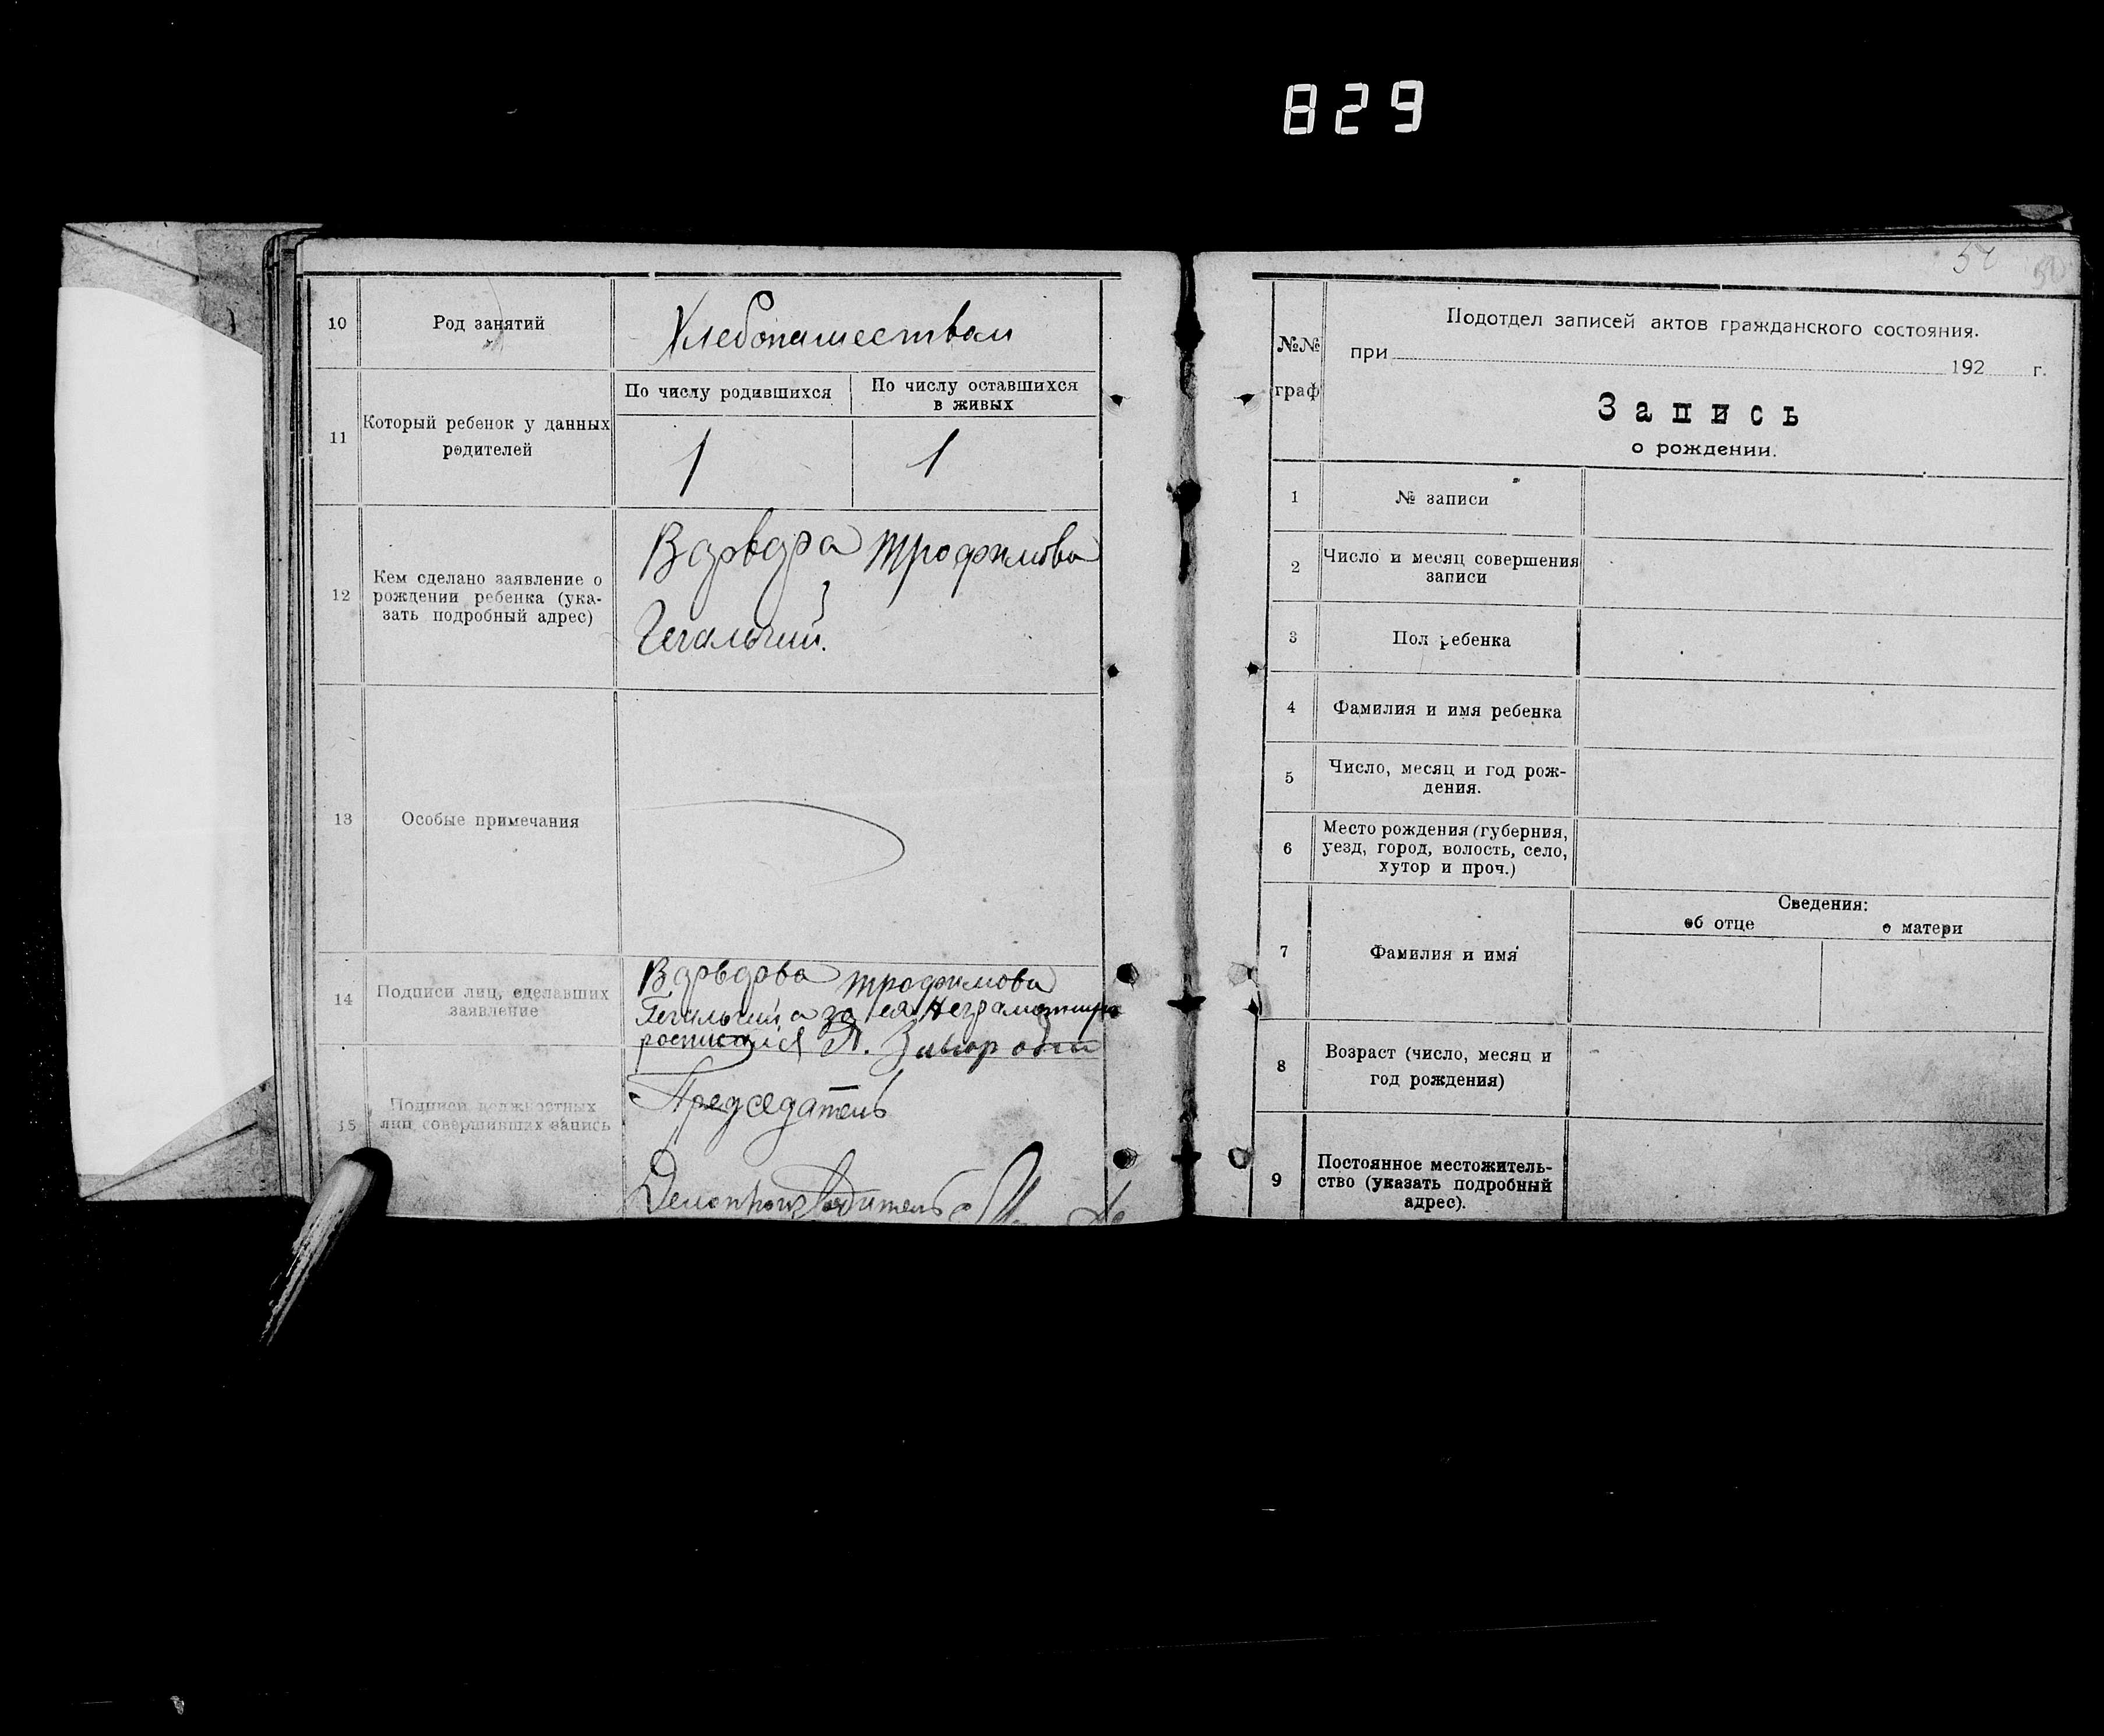 829
10 Род занятий Хлебопашеством
11 Который ребенок у данных родителей
По числу родившихся
По числу оставшихся
в живых
1 1
12 Кем сделано заявление о
рождении ребенка (ука-
зать подробный адрес)
Варвара трофимова
13 Особые примечания
14 Подписи лиц, сделавших
заявление
трофимова
а за ея
Председатель
15 Подписи должностных
лиц, совершивших запись
Делопроизводитель
№№
граф
Подотдел записей актов гражданского состояния.
при 192 г.
Запись
о рождении.
1 № записи
2 Число и месяц совершения
записи
3 Пол ребенка
4 Фамилия и имя ребенка
5 Число, месяц и год рож-
дения.
6 Место рождения (губерния,
уезд, город, волость, село,
хутор и проч.)
Сведения:
об отце о матери
7 Фамилия и имя
8 Возраст (число, месяц и
год рождения)
9 Постоянное местожитель-
ство (указать подробный
адрес).